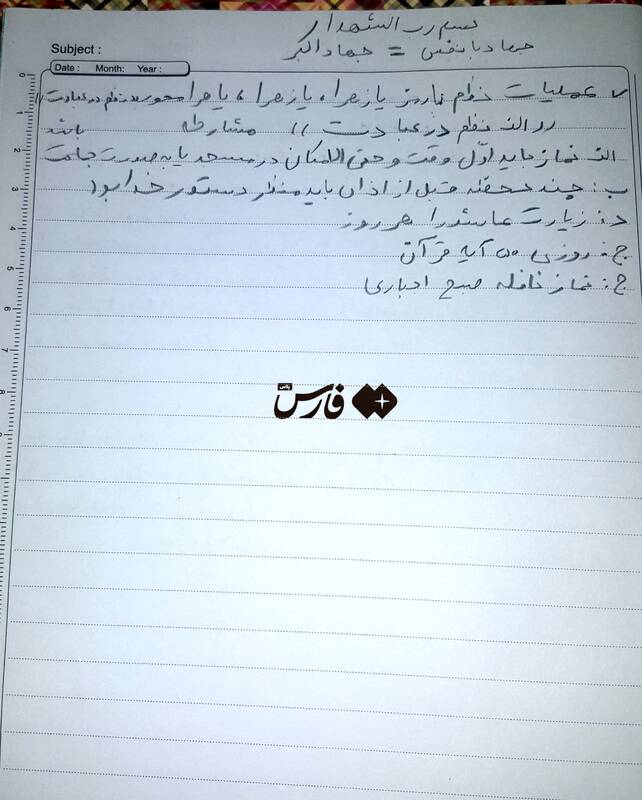 بسم رب الشهدا
جهاد با نفس = جهاد اکبر
Subject :
Date : Month: Year :
عملیات خودم با رمز یا زهرا، یا زهرا، یا زهرا محور نظم در عبادت //
// الف نظم در عبادت // مشارطه باشد
الف نماز باید اوّل وقت و حتی الامکان در مسجد یا به صورت جماعت
ب: چند دقیقه قبل از اذان باید منتظر دستور خدا بود
د: زیارت عاشورا هر روز
ج: روزی ۵۰ آیه قرآن
ح: نماز نافله صبح اجباری
فارس
پلاس
0
1
2
3
4
5
6
7
8